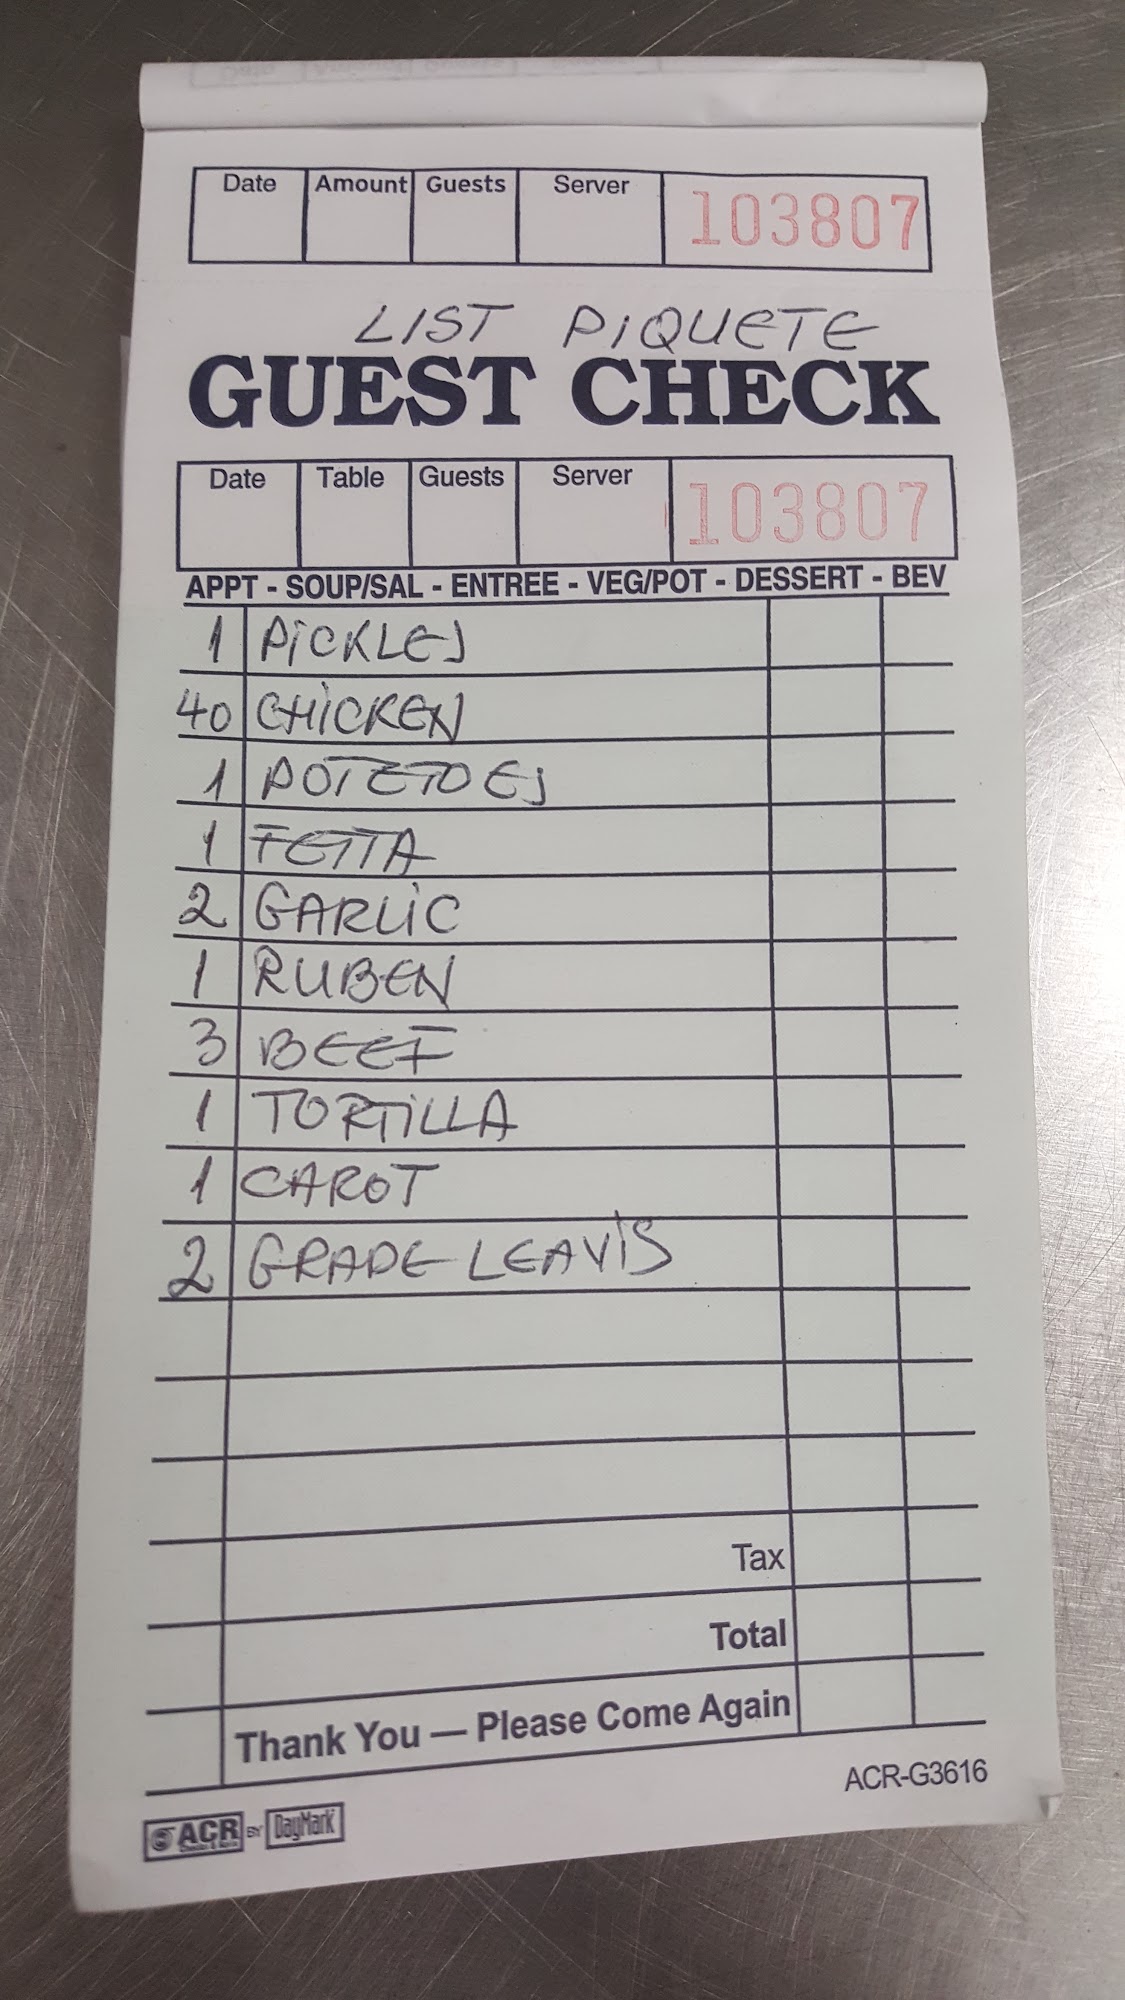 Date Amount Guests Server 103807
LIST PIQUETE
GUEST CHECK
Date Table Guests Server 103807
APPT - SOUP/SAL - ENTREE - VEG/POT - DESSERT - BEV
1 PICKLES
40 CHICKEN
1 POTETOES
1 FETTA
2 GARLIC
1 RUBEN
3 BEEF
1 TORTILLA
1 CAROT
2 GRAPE LEAVIS
Tax
Total
Thank You — Please Come Again
ACR-G3616
ACR BY DayMark